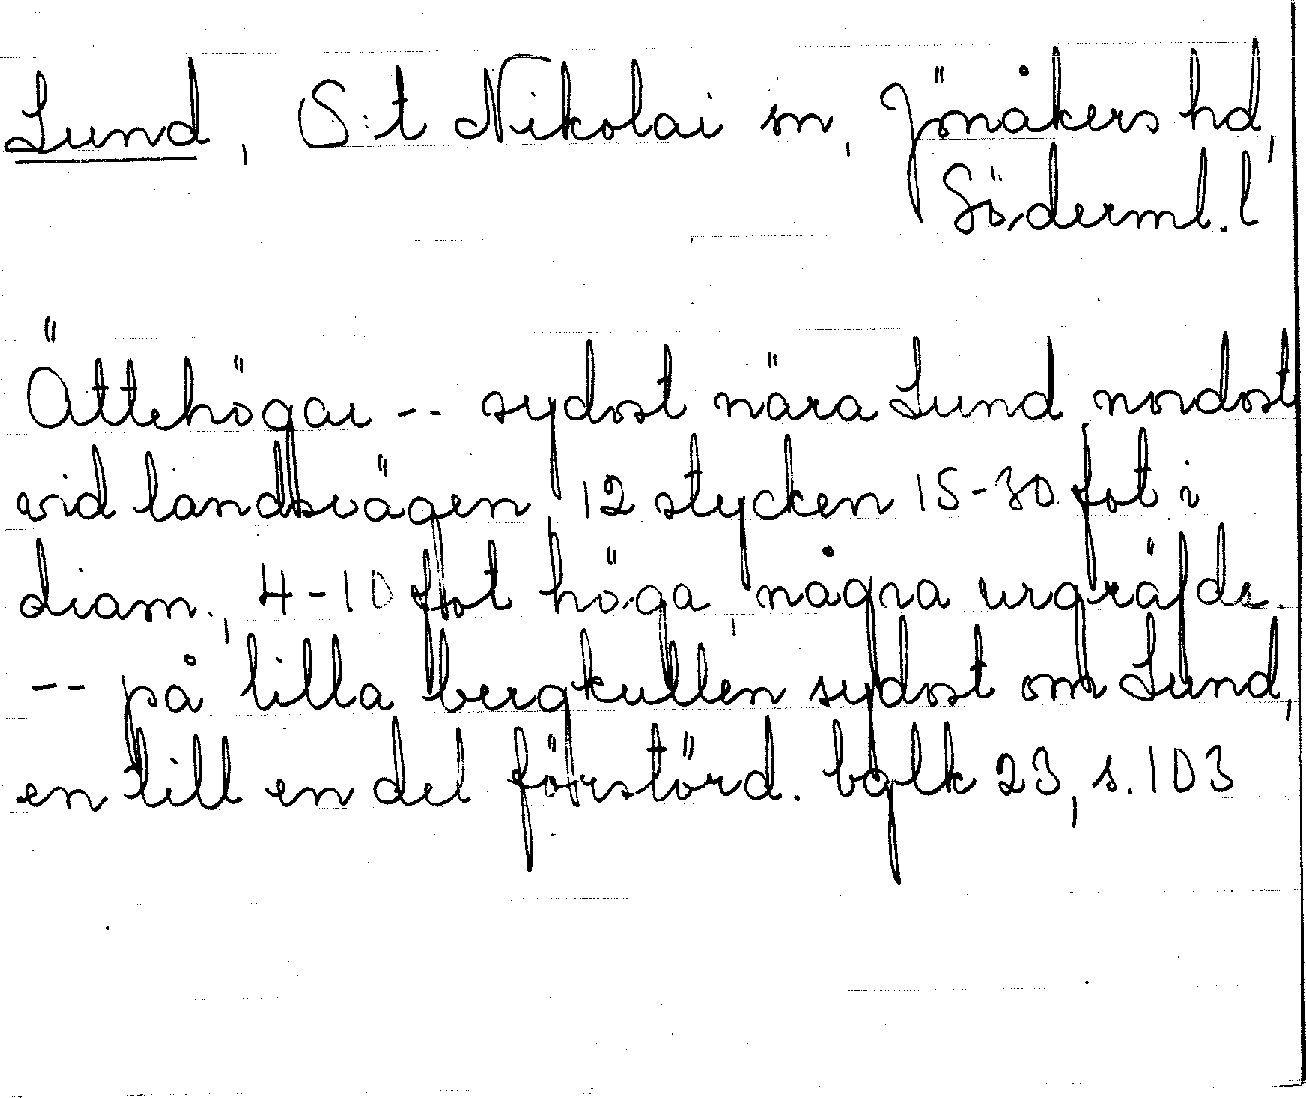 Lund, S:t Nikolai sn, Jönåkers hd,
Söderml. l
Ättehögar -- sydost nära Lund nordost
vid landsvägen 12 stycken 15-30 fot i
diam., 4-10 fot höga, några urgräfde
-- på lilla bergkullen sydost om Lund,
en till en del förstörd. balk 23, s. 103